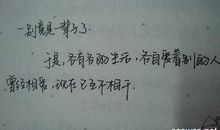 一别竟是一辈子了
于是,各有各的生活,各自爱着别的人
曾经相爱,现在已互不相干.